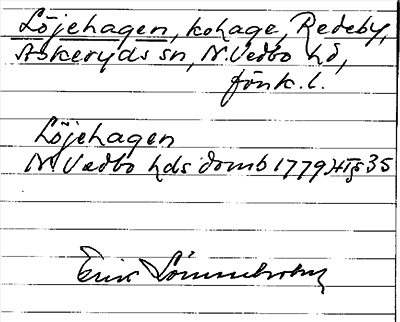 Löjehagen, kohage, Redeby,
Askeryds sn, N. Vedbo hd,
Jönk. l.
Löjehagen
N. Vedbo hds domb 1779 35
Erik